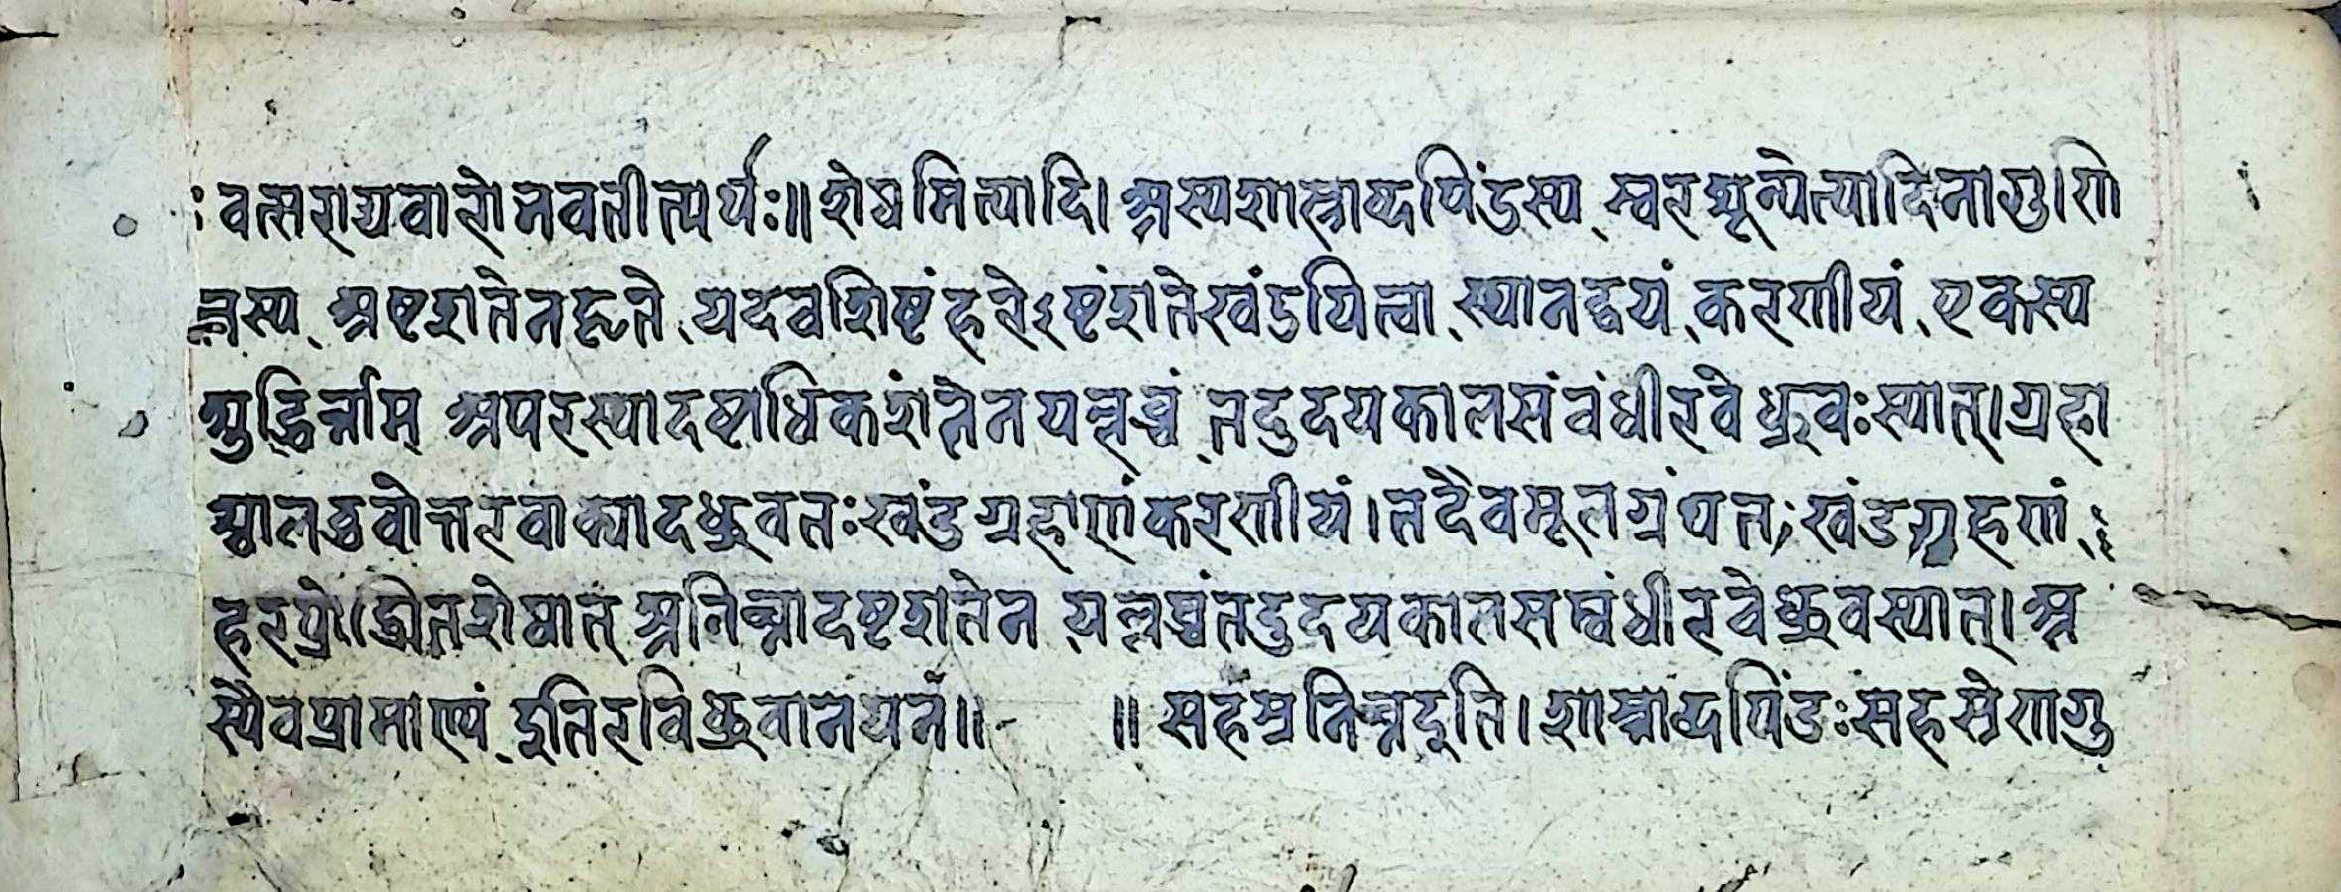 वत्सराद्यवारो नवतीत्यर्थः॥ शेषमित्यादि। अस्यशास्त्राब्दपिंडस्य स्वरशून्येत्यादिनागुणि
तस्य अष्टशतेनहृते यदवशिष्टं हरेऽष्टंशतेखंडयित्वा स्थानद्वयं करणीयं एकस्य
शुद्धिर्नाम् अपरस्यादष्टाधिकशंतेनयल्लब्धं तदुदयकालसंबंधीरवेध्रुवःस्यात्। ग्रहा
श्चालद्भवोत्तरवाक्यादध्रुवतःखंडग्रहाणंकरणीयं। तदैवमूलग्रंथतः खंडग्रहणं
हरप्रोज्झितशेषात् अतिघ्नादष्टशतेन यल्लब्धंतदुदयकालसम्बंधीरवेध्रुवस्यात्। अ
स्यैवप्रामाण्यं इतिरविध्रुवानयनं॥ ॥ सहस्रनिघ्नइति। शास्त्राब्दपिंडःसहस्रेणगु